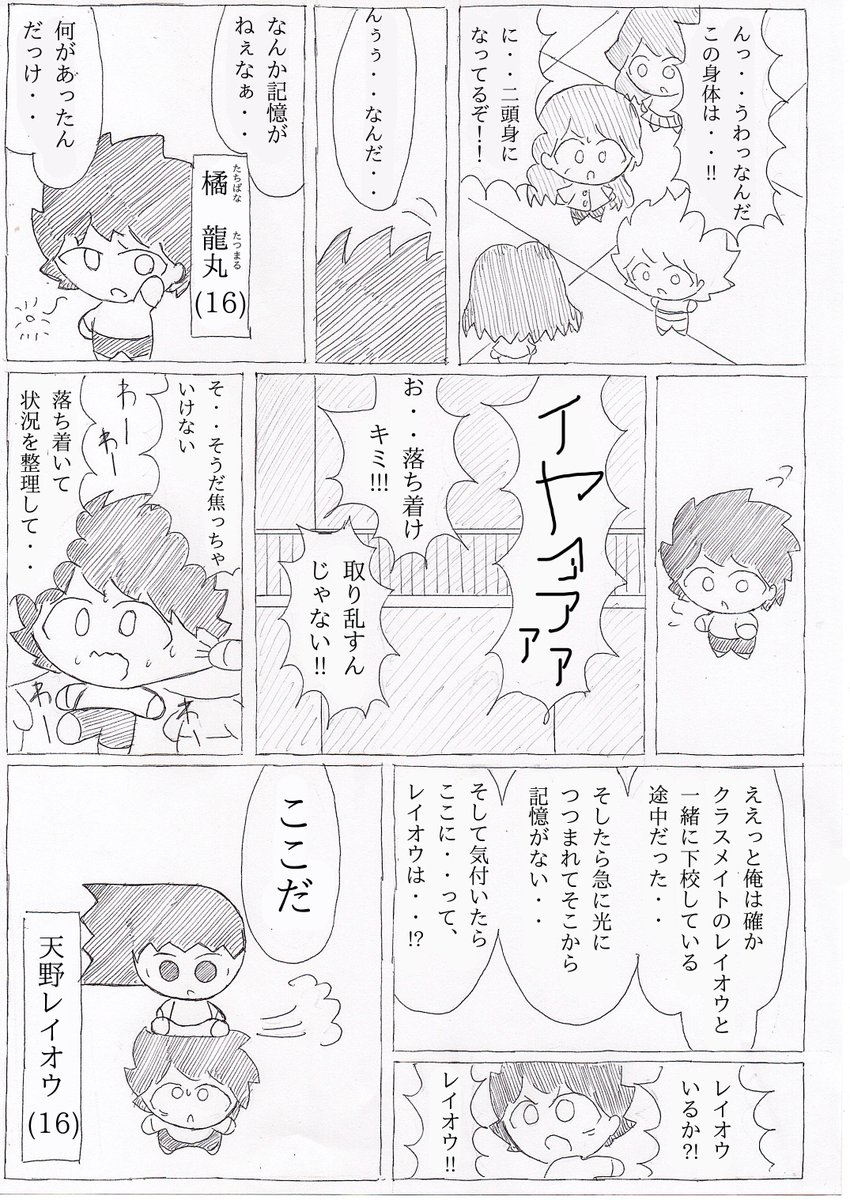 んっ・・うわっなんだ
この身体は・・!!
に・・二頭身に
なってるぞ!!
んぅぅ・・なんだ・・
なんか記憶が
ねぇなぁ・・
橘 龍丸(16)
たちばな たつまる
何があったん
だっけ・・
イヤァァァァ
お・・落ち着け
キミ!!!
取り乱すん
じゃない!!
そ・・そうだ焦っちゃ
いけない
わーわー
落ち着いて
状況を整理して・・
わー
わー
ええっと俺は確か
クラスメイトのレイオウと
一緒に下校している
途中だった・・
そしたら急に光に
つつまれてそこから
記憶がない・・
そして気付いたら
ここに・・って、
レイオウは・・!?
レイオウ
いるか?!
レイオウ!!
ここだ
天野レイオウ(16)